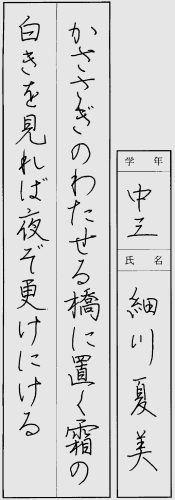 かささぎのわたせる橋に置く霜の
白きを見れば夜ぞ更けにける
学年
中三
氏名
細川夏美